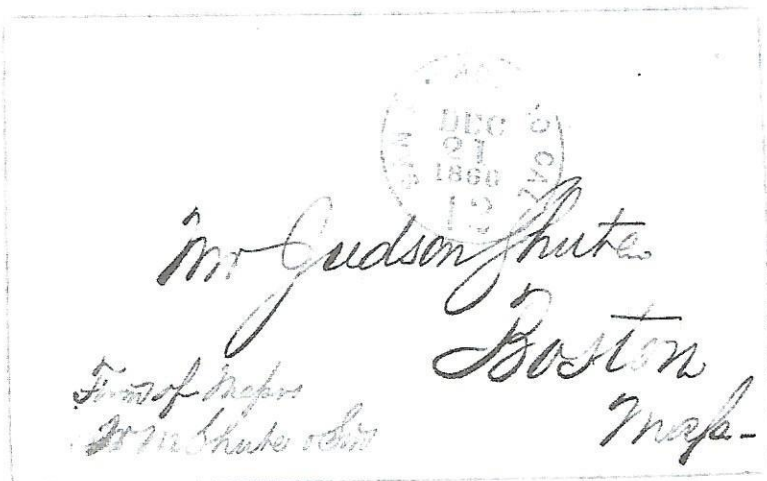 SAN CAL
DEC
21
1860
12
Mr Judson Shute
Boston
Mass-
Firm of Messrs
Wm Shute & Son